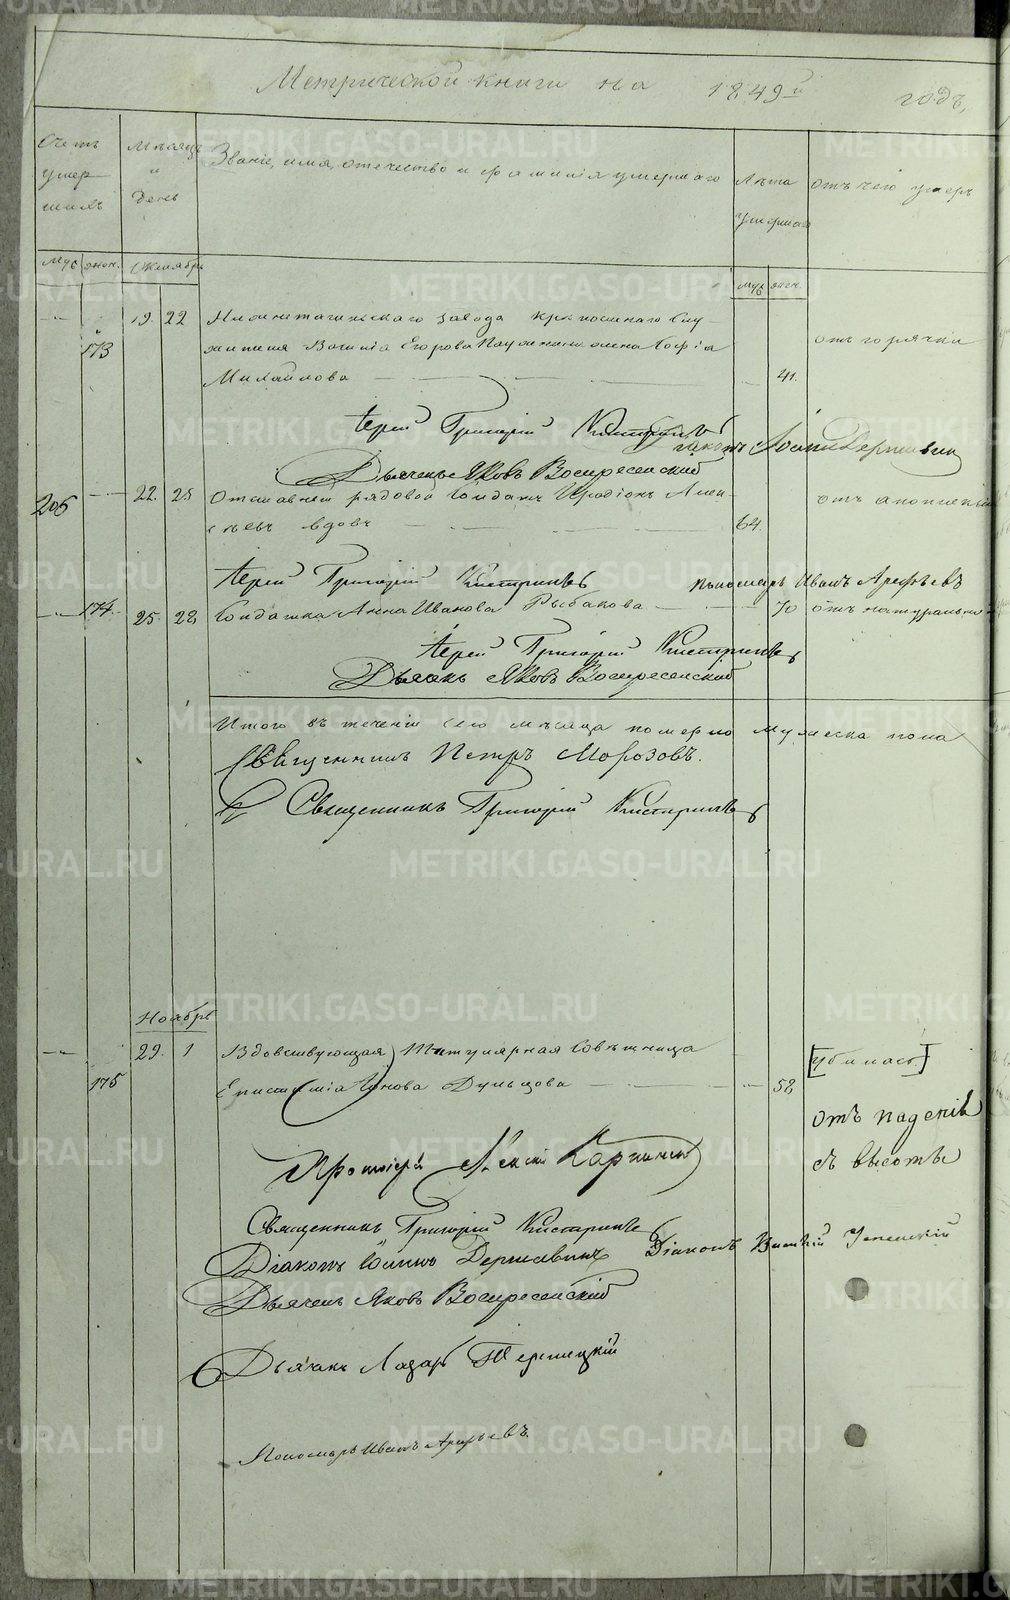 Метрической книги на 1849й годъ,
Счетъ умер шихъ
Мѣсяцъ и день
Званіе, имя, отечество и фамилія умершаго
Лѣта умершаго
отъ чего умеръ
Муж. жен. Октябрь
муж. жен.
173 19. 22 Нижнетагильскаго завода крѣпостнаго Слу-
жителя Василія Егорова жена Софія отъ горячки
Михайлова 41.
Іерей Григорій Діаконъ Іоаннъ Державинъ
Дьячекъ Яковъ Воскресенскій
206 22. 25 Отставной рядовой Солдатъ Иродіонъ Алек-
сѣевъ вдовъ 64.
Іерей Григорій пономарь Иванъ Арефьевъ
174. 25. 28 Солдатка Анна Иванова Рыбакова 70 отъ натуральной
Іерей Григорій
Дьячекъ Яковъ Воскресенскій
Итого въ теченіи сего мѣсяца померло мужеска пола
Священникъ Петръ Морозовъ.
Священникъ Григорій
Ноябрь
29. 1 Вдовствующая Титулярная Совѣтница [убилась]
175 Епистимія Дульцова 58
отъ паденія
съ высоты
Протоіерей Алексій Карпинскій
Священникъ Григорій
Діаконъ Іоаннъ Державинъ Діаконъ Василій Успенскій
Дьячекъ Яковъ Воскресенскій
Дьячекъ Лазарь
Пономарь Иванъ Арефьевъ
METRIKI.GASO-URAL.RU